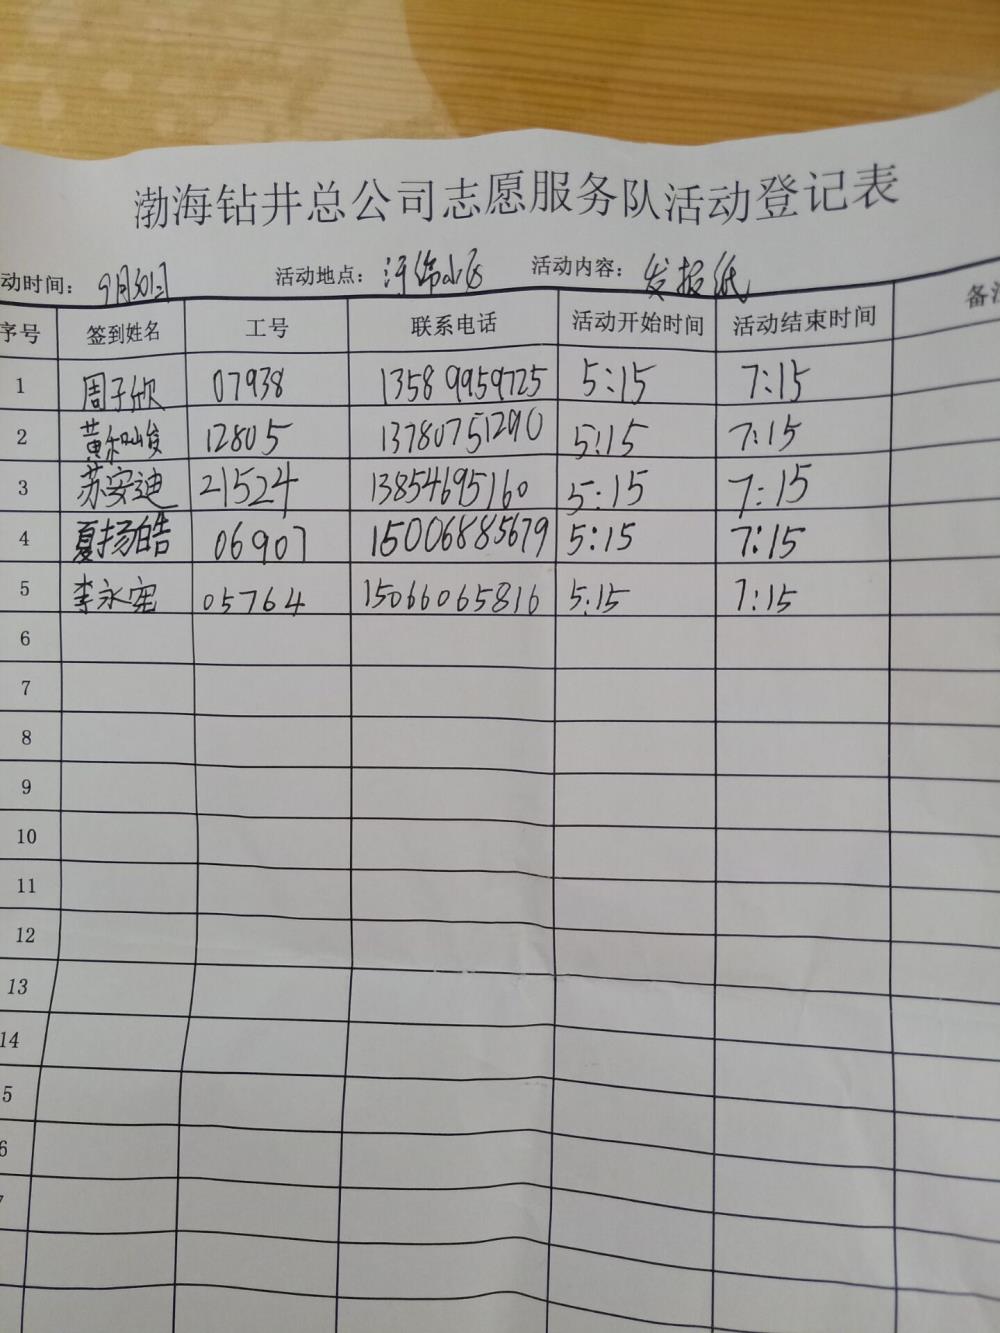 渤海钻井总公司志愿服务队活动登记表
动时间: 9月30日 活动地点: 小区 活动内容: 发报纸
序号 签到姓名 工号 联系电话 活动开始时间 活动结束时间 备注
1 周子欣 07938 13589959725 5:15 7:15
2 黄和峻 12805 13780751290 5:15 7:15
3 苏安迪 21524 13854695160 5:15 7:15
4 夏扬皓 06907 15006885679 5:15 7:15
5 李永宪 05764 15066065816 5:15 7:15
6
7
8
9
10
11
12
13
14
5
6
7